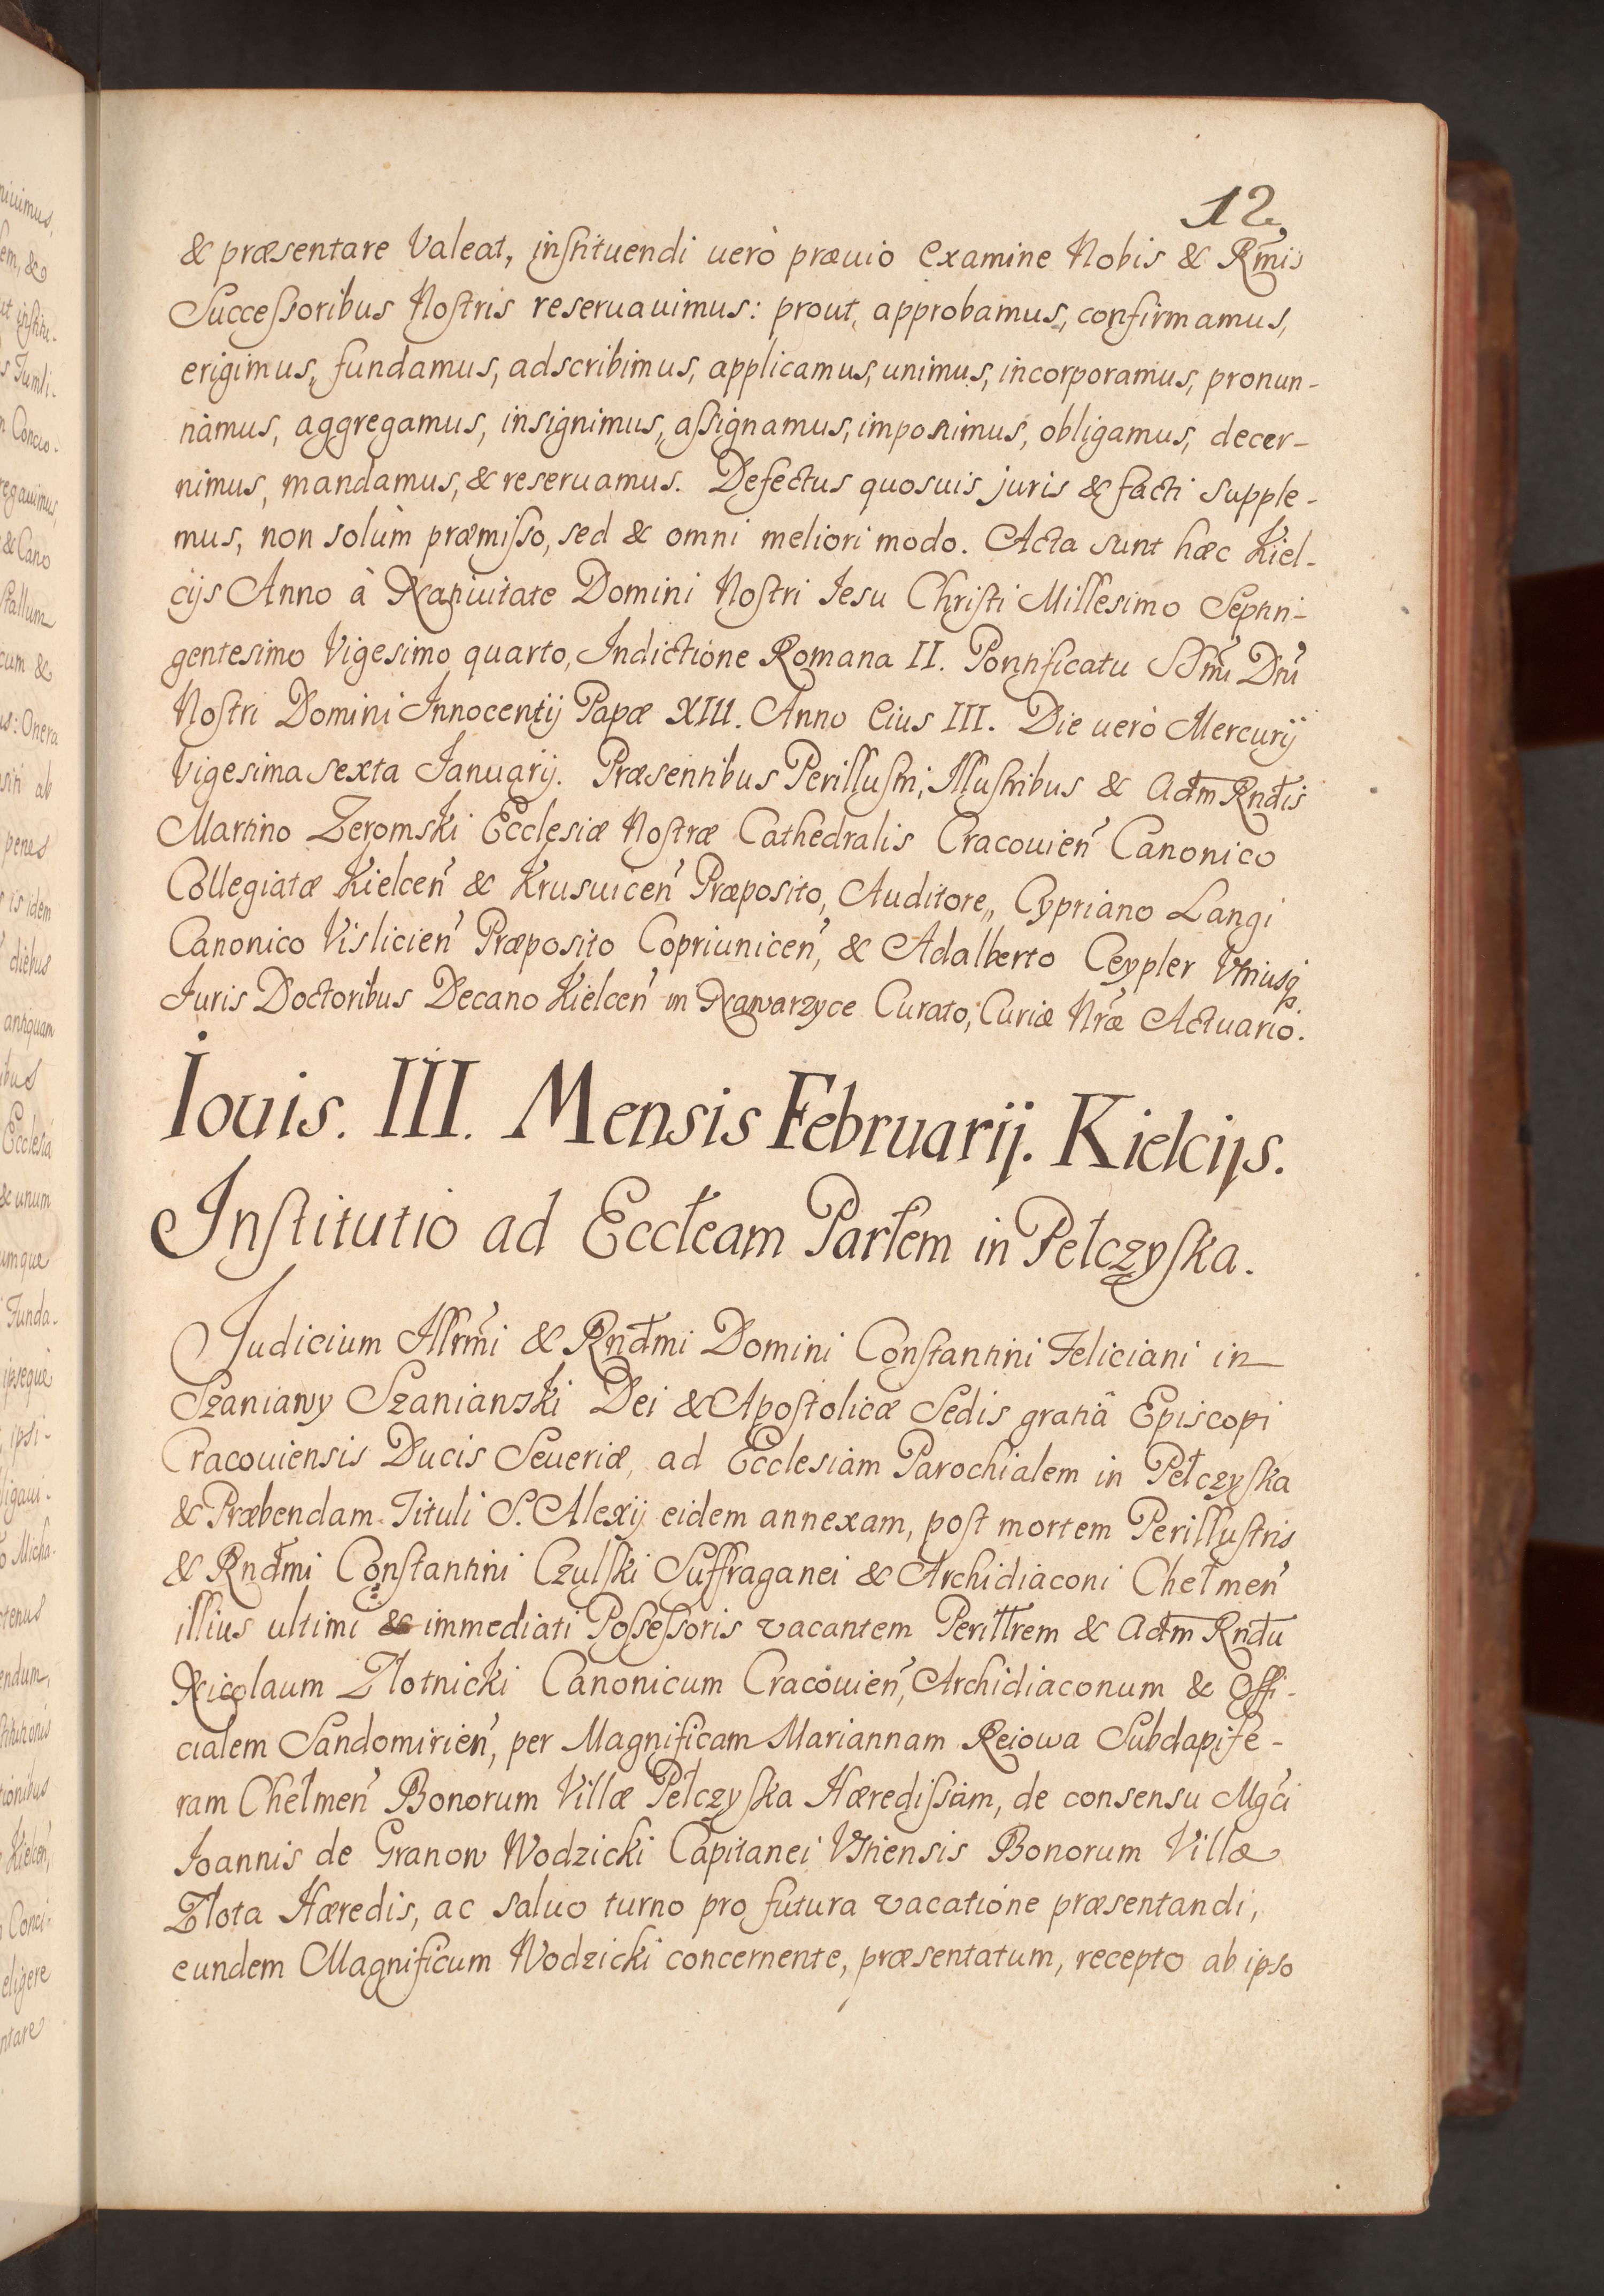 12.
& præsentare Valeat, instituendi uerò præuio examine Nobis & Rm̃is
Successoribus Nostris reseruauimus: prout, approbamus, confirmamus,
erigimus, fundamus, adscribimus, applicamus, unimus, incorporamus, pronun-
tiamus, aggregamus, insignimus, assignamus, imponimus, obligamus, decer-
nimus, mandamus, & reseruamus. Defectus quosuis juris & facti supple-
mus, non solùm præmisso, sed & omni meliori modo. Acta sunt hæc Kiel-
cijs Anno à Natiuitate Domini Nostri Iesu Christi Millesimo Septin-
gentesimo Vigesimo quarto, Indictione Romana II. Pontificatu SSm̃i Dn̄i
Nostri Domini Innocentij Papæ XIII. Anno Eius III. Die uerò Mercurij
Vigesima sexta Ianuarij. Præsentibus Perillustri, Illustribus & Adm Rndis
Martino Zeromski Ecclesiæ Nostræ Cathedralis Cracouien̄ Canonico
Collegiatæ Kielcen̄ & Krusuicen̄ Præposito, Auditore, Cypriano Langi
Canonico Vislicien̄ Præposito Copriunicen̄, & Adalberto Ceypler Vtriusq
Iuris Doctoribus Decano Kielcen̄ in Nawarzyce Curato, Curiæ Nr̄æ Actuario.
Iouis. III. Mensis Februarij. Kielcijs.
Institutio ad Eccłeam Parłem in Pełczyska.
Judicium Illrm̃i & Rndmi Domini Constantini Feliciani in
Szaniawy Szaniawski Dei & Apostolicæ Sedis gratiâ Episcopi
Cracouiensis Ducis Seueriæ, ad Ecclesiam Parochialem in Pełczyska
& Præbendam Tituli S. Alexij eidem annexam, post mortem Perillustris
& Rndmi Constantini Czulski Suffraganei & Archidiaconi Chełmen̄
illius ultimi & immediati Possessoris vacantem Perillrem & Adm Rndu
Nicolaum Złotnicki Canonicum Cracouien̄, Archidiaconum & Offi-
cialem Sandomirien̄, per Magnificam Mariannam Reiowa Subdapife-
ram Chełmen̄ Bonorum Villæ Pełczyska Hæredissam, de consensu Mgci
Joannis de Granow Wodzicki Capitanei Bonorum Villæ
Złota Hæredis, ac saluo turno pro futura vacatione præsentandi,
eundem Magnificum Wodzicki concernente, præsentatum, recepto ab ipso